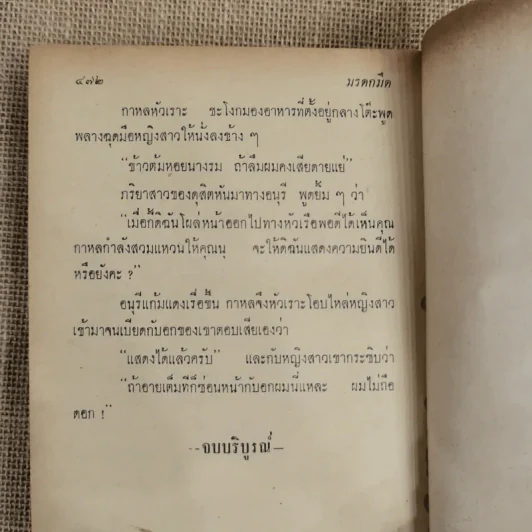 ๔๗๒ มรดกมืด
กาหลหัวเราะ ชะโงกมองอาหารที่ตั้งอยู่กลางโต๊ะพูด
พลางฉุดมือหญิงสาวให้นั่งลงข้าง ๆ
"ข้าวต้มหอยนางรม ถ้าลืมผมคงเสียดายแย่"
ภริยาสาวของดุสิตหันมาทางอนุรี พูดยิ้ม ๆ ว่า
"เมื่อกี้ดิฉันโผล่หน้าออกไปทางหัวเรือพอดีได้เห็นคุณ
กาหลกำลังสวมแหวนให้คุณนุ จะให้ดิฉันแสดงความยินดีได้
หรือยังคะ ?"
อนุรีแก้มแดงเรื่อขึ้น กาหลจึงหัวเราะโอบไหล่หญิงสาว
เข้ามาจนเบียดกับอกของเขาตอบเสียเองว่า
"แสดงได้แล้วครับ" และกับหญิงสาวเขากระซิบว่า
"ถ้าอายเต็มทีก็ซ่อนหน้ากับอกผมนี่แหละ ผมไม่ถือ
ดอก !"
--จบบริบูรณ์—